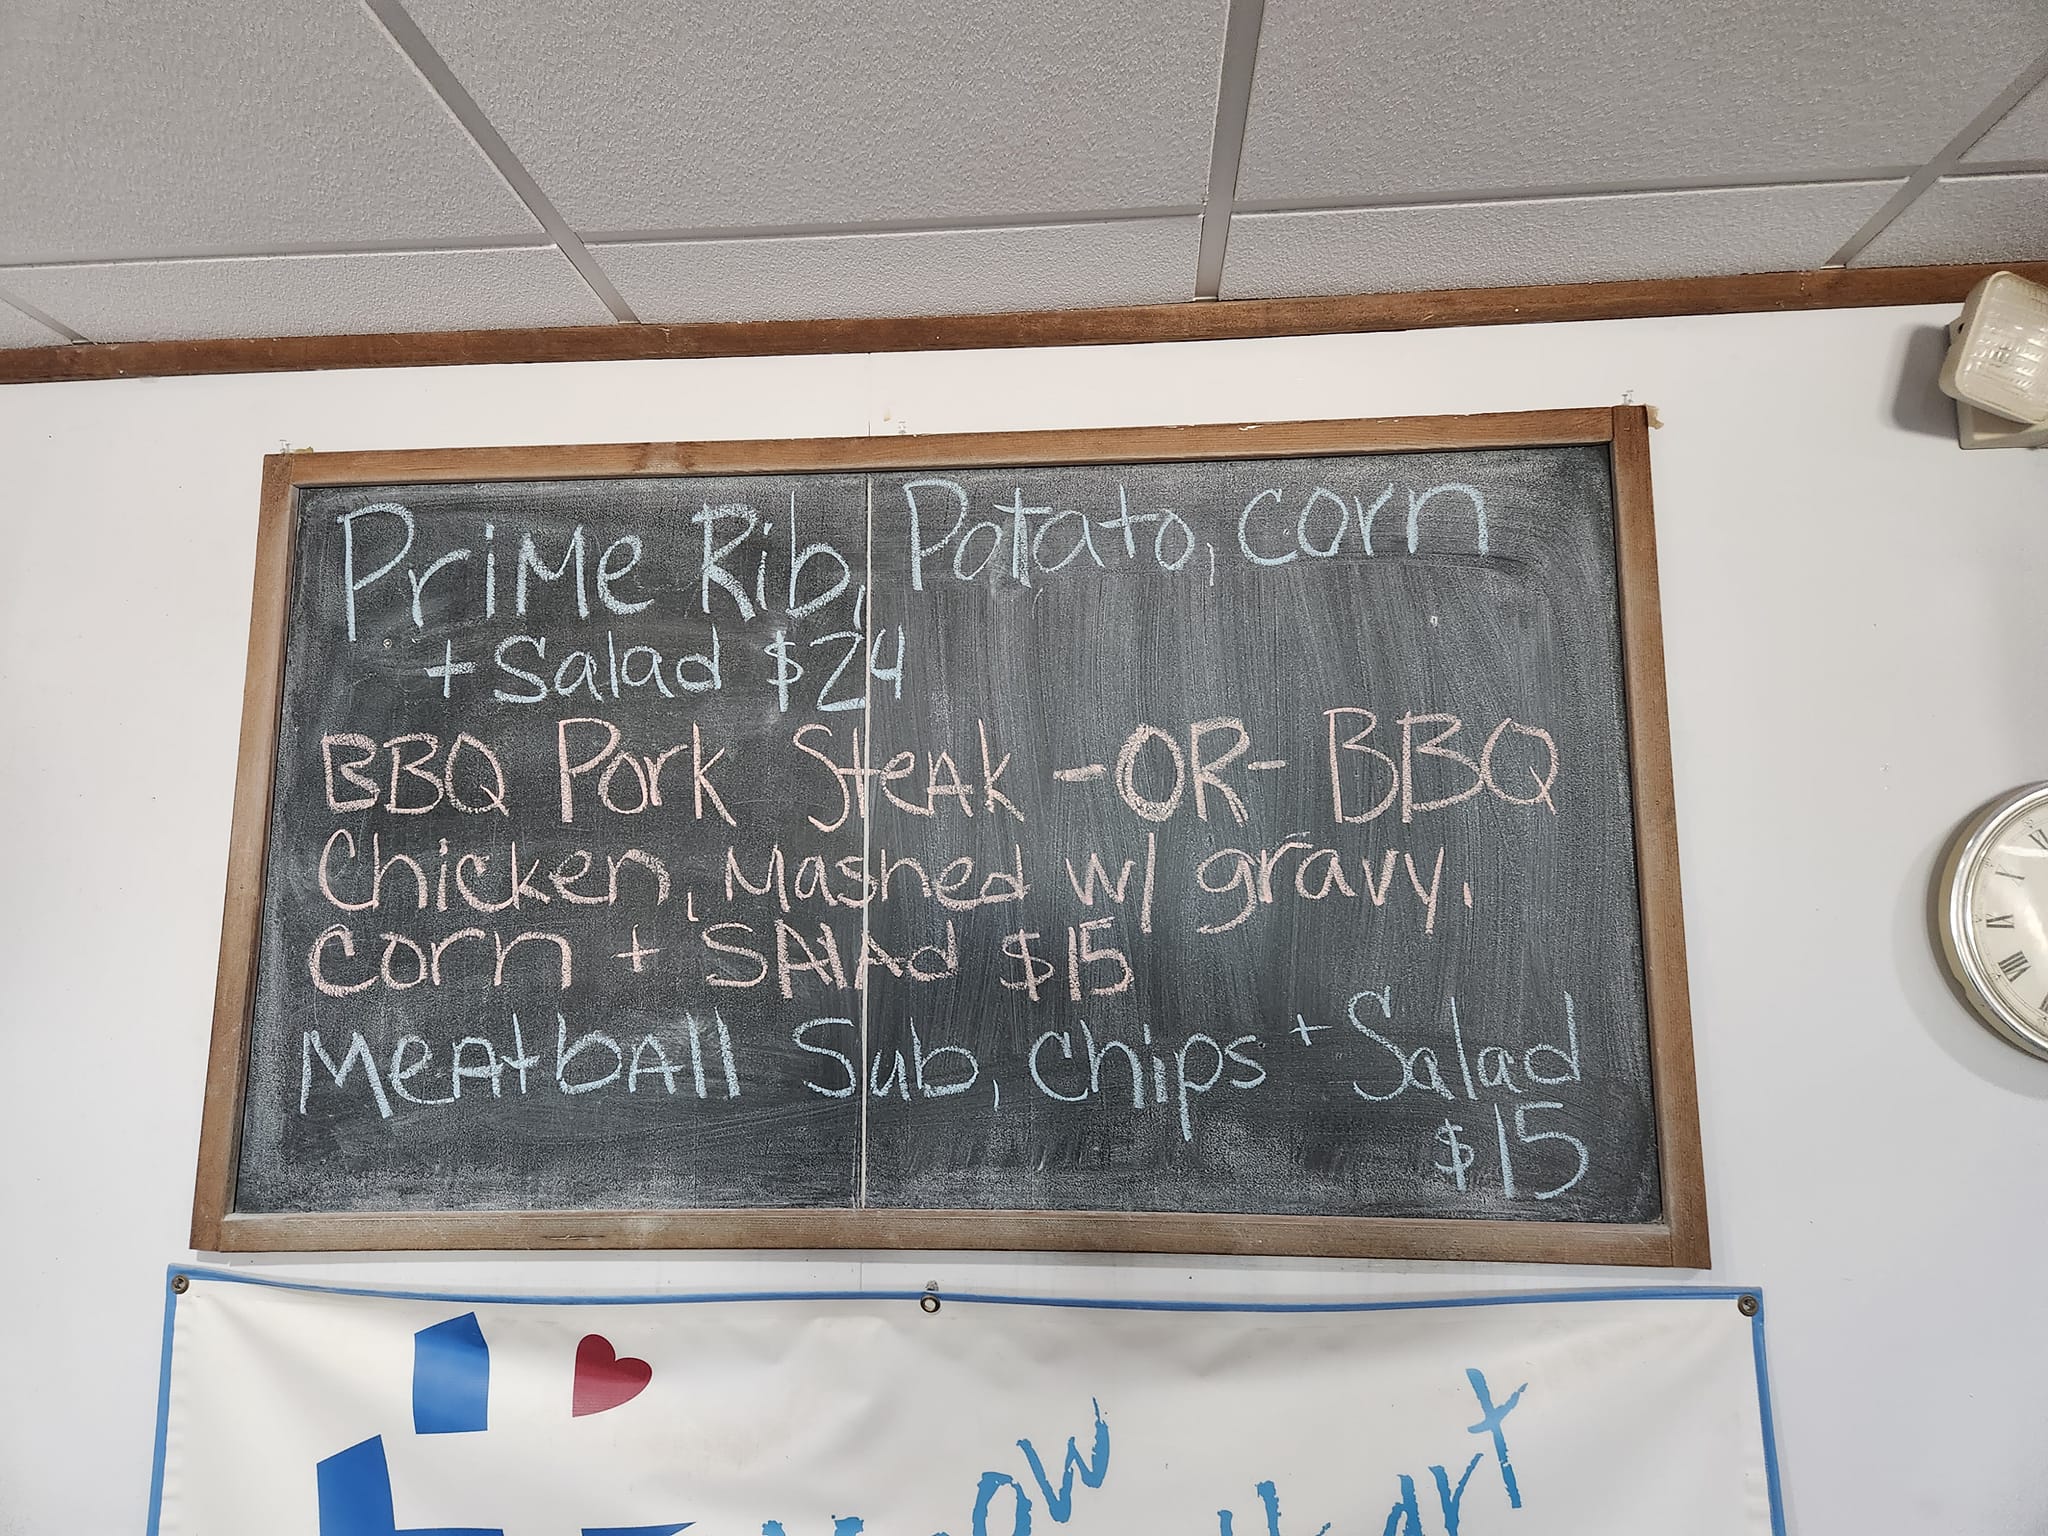 PriMe Rib, Potato, corn
+ Salad $24
BBQ Pork SteAk -OR- BBQ
Chicken, Mashed w/ gravy,
corn + SAlAd $15
MeAtbAll Sub, Chips + Salad
$15